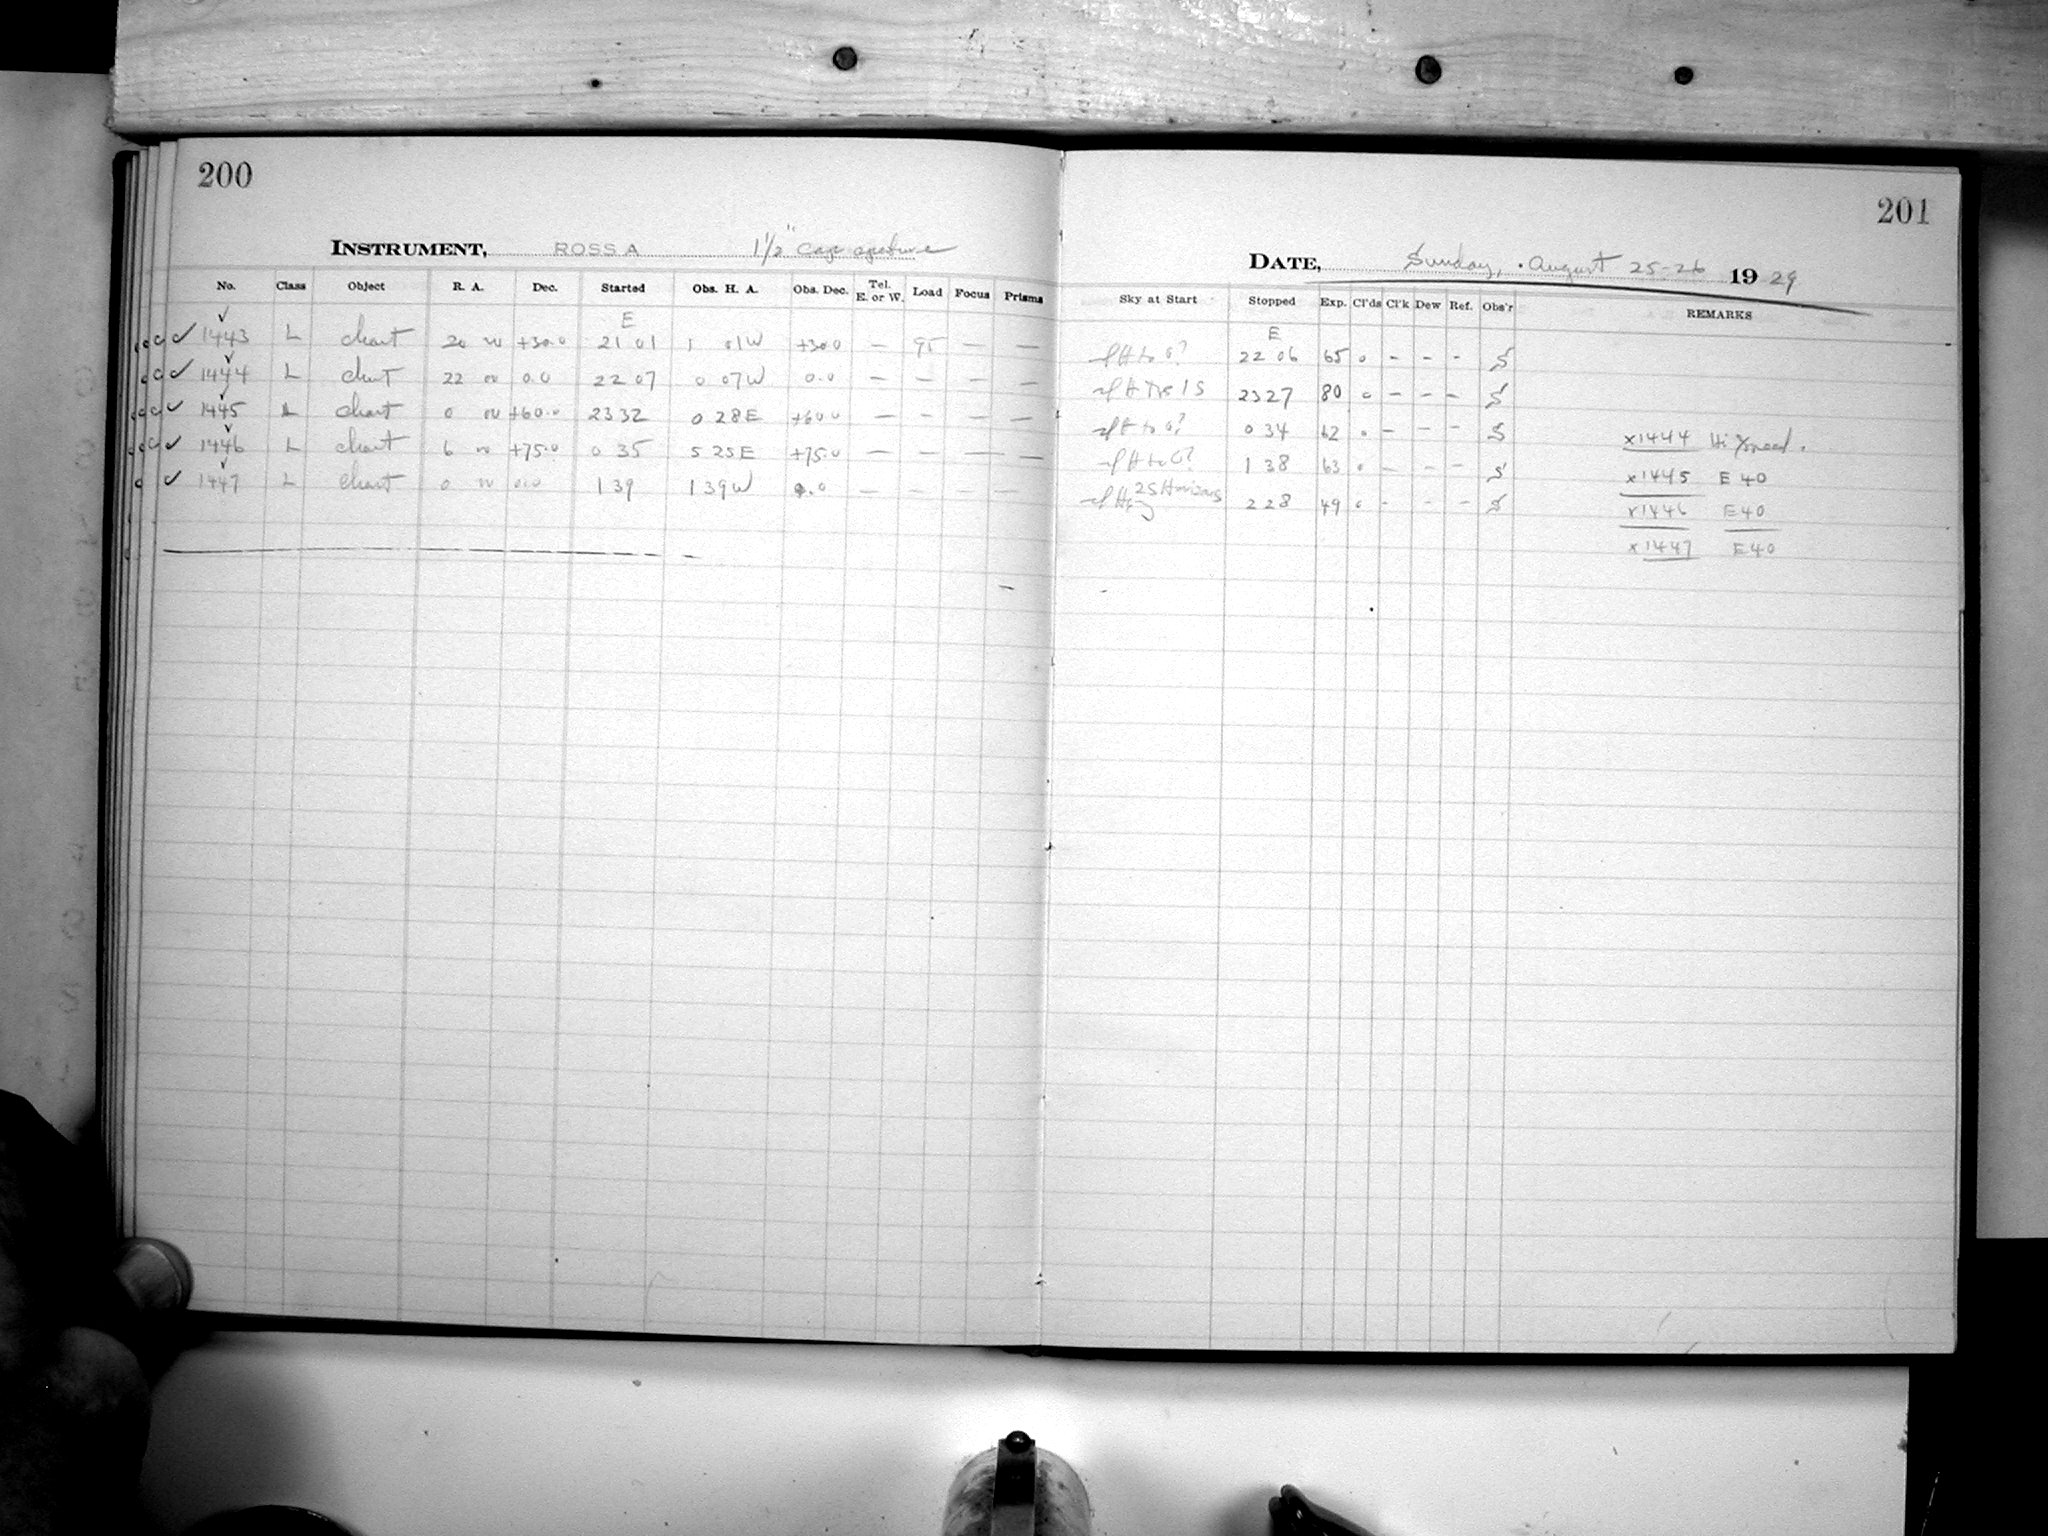 200
INSTRUMENT, ROSS A 1½" cap aperture
No. Class Object R. A. Dec. Started Obs. H. A. Obs. Dec. Tel. E. or W. Load Focus Prisms
E
1443 L chart 20 00 +30.0 21 01 1 01W +30.0 — 95 — —
1444 L chart 22 00 0.0 22 07 0 07W 0.0 — — — —
1445 L chart 0 00 +60.0 23 32 0 28E +60.0 — — — —
1446 L chart 6 00 +75.0 0 35 5 25E +75.0 — — — —
1447 L chart 0 00 0.0 1 39 1 39W 0.0 — — — —
201
DATE, Sunday, August 25-26 1929
Sky at Start Stopped Exp. Cl'ds Cl'k Dew Ref. Obs'r REMARKS
E
22 06 65 0 - - - S
23 27 80 0 - - - S
0 34 62 0 - - - S
1 38 63 0 - - - S
2 28 49 0 - - - S
x1444 Hi Speed.
x1445 E 40
x1446 E 40
x1447 E 40